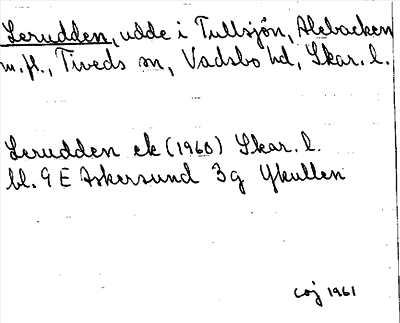 Lerudden, udde i Tullsjön, Alebacken
m.fl., Tiveds sn, Vadsbo hd, Skar. l.
Lerudden ek (1960) Skar. l.
bl. 9 E Askersund 3g Ykullen
CSJ 1961